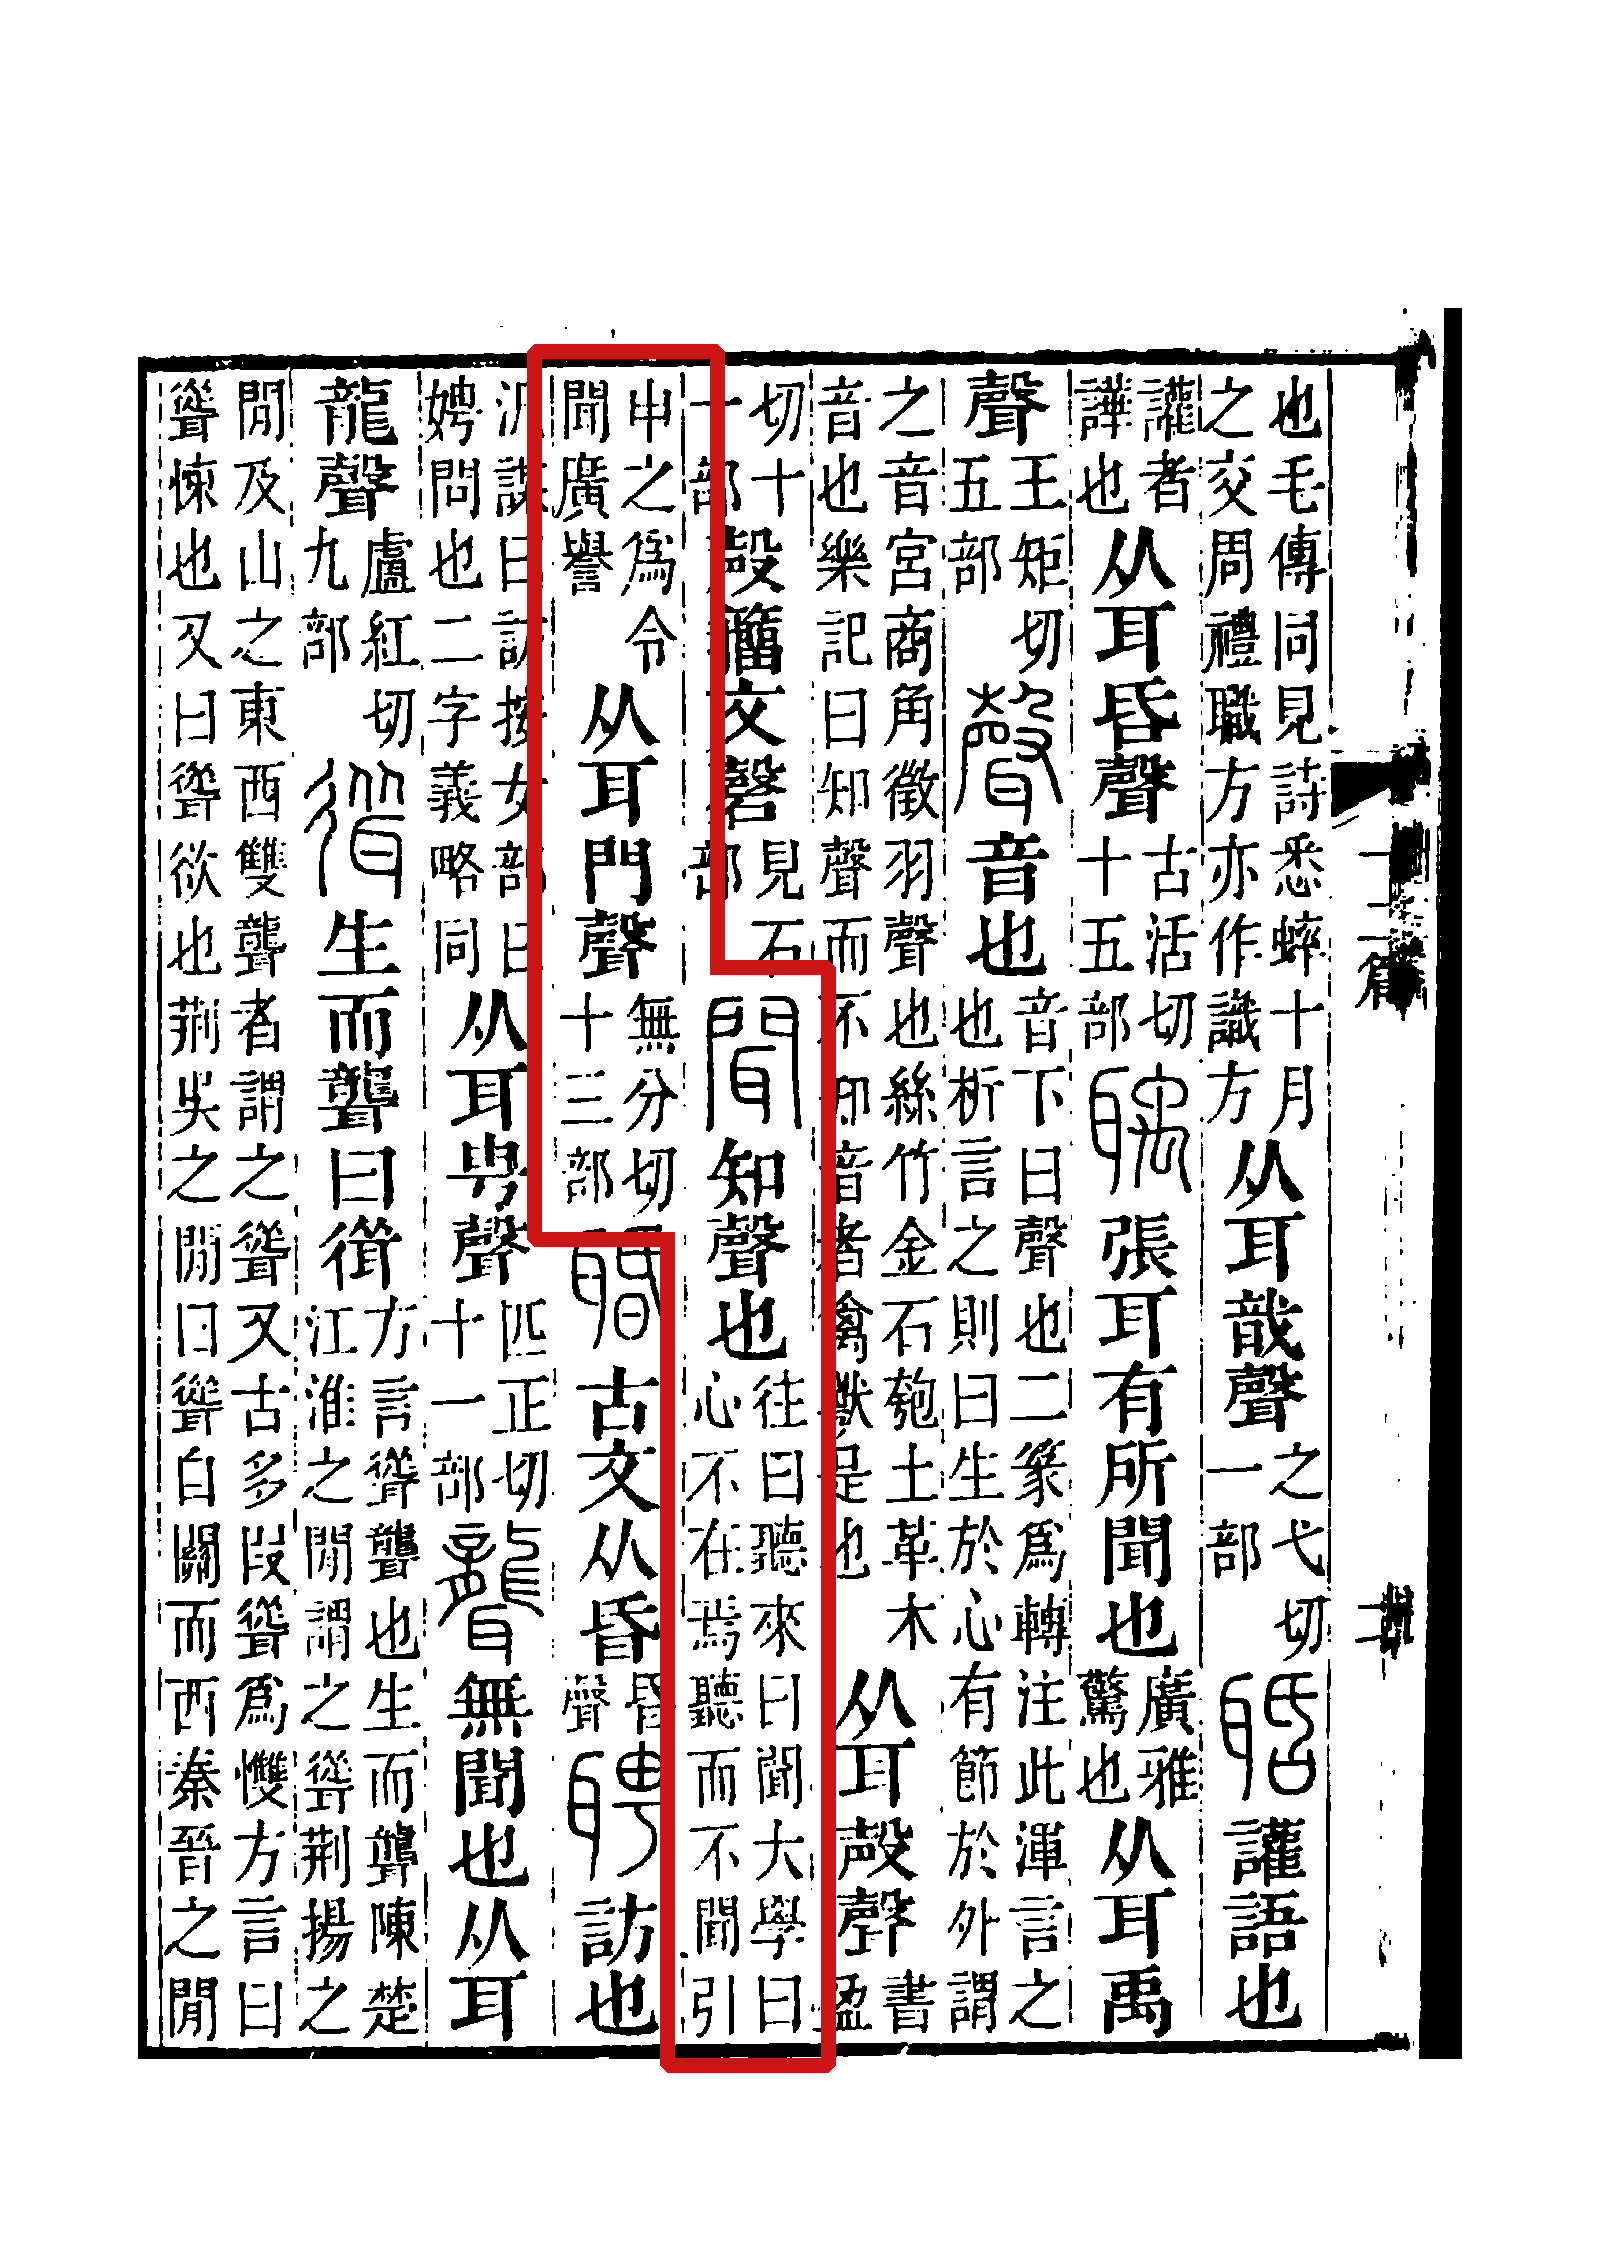 也毛傳同見詩悉蟀十月之交周禮職方亦作識方从耳哉聲之弋切一部聒讙語也
讙者譁也从耳昏聲古活切十五部聥張耳有所聞也廣雅驚也从耳禹
聲王矩切五部聲音也音下曰聲也二篆爲轉注此渾言之也析言之則曰生於心有節於外謂
之音宮商角徵羽聲也絲竹金石匏土革木音也樂記曰知聲而不知音者禽獸是也从耳殸聲書盈
切十一部殸籒文磬見石部聞知聲也往曰聽來曰聞大學曰心不在焉聽而不聞引
申之爲令聞廣譽从耳門聲無分切十三部䎽古文从昏昏聲聘訪也
汎謀曰訪按女部曰娉問也二字義略同从耳甹聲匹正切十一部聾無聞也从耳
龍聲盧紅切九部𦗜生而聾曰𦗜方言聳聾也生而聾陳楚江淮之閒謂之聳荆揚之
閒及山之東西雙聾者謂之聳又古多叚聳爲㦼方言曰聳悚也又曰聳欲也荆吳之閒曰聳自關而西秦晉之閒